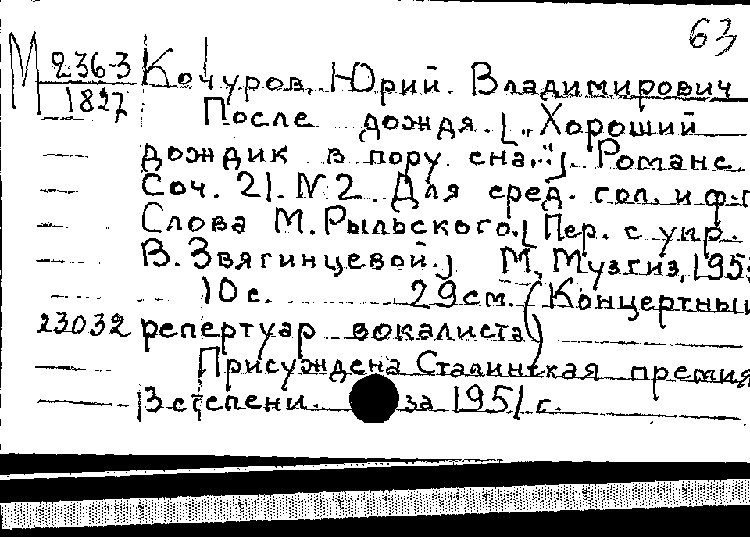 63
М 236-3 Кочуров, Юрий Владимирович
1827 После дождя. [„Хороший
дождик в пору сна.."]. Романс
Соч. 21. № 2. Для сред. гол. и ф-п
Слова М. Рыльского. [Пер. с укр.
В. Звягинцевой.] М, Музгиз, 195
10 с. 29 см. (Концертный
23032 репертуар вокалиста)
Присуждена Сталинская премия
3 степени. за 1951 г.